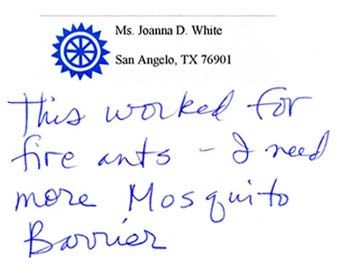 Ms. Joanna D. White
San Angelo, TX 76901
This worked for
fire ants - I need
more Mosquito
Barrier